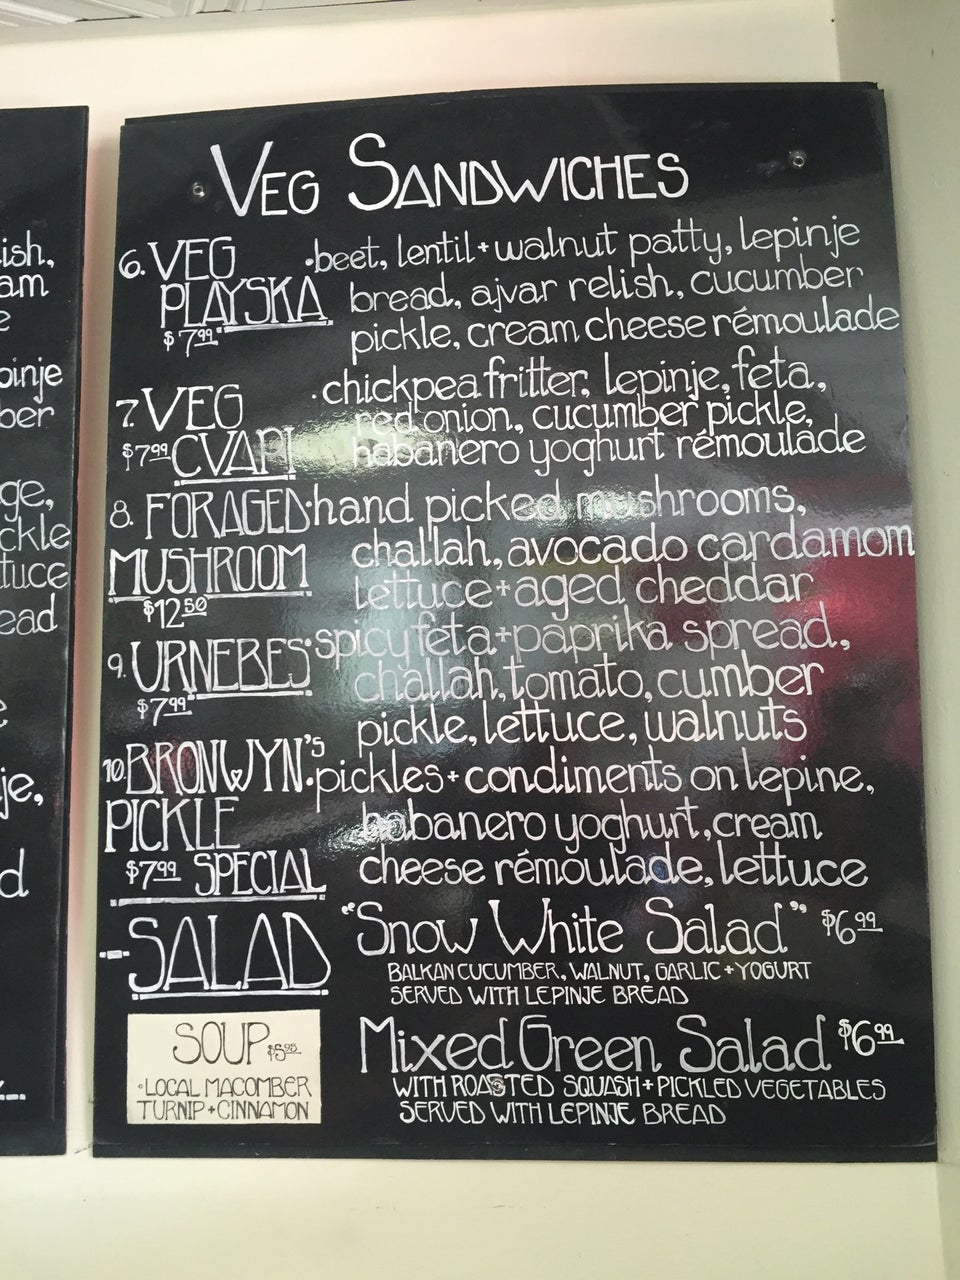 VEG SANDWICHES
6. VEG PLAYSKA $7.99 · beet, lentil + walnut patty, lepinje
bread, ajvar relish, cucumber
pickle, cream cheese rémoulade
7. VEG CVAPI $7.99 · chickpea fritter, lepinje, feta,
red onion, cucumber pickle,
habanero yoghurt rémoulade
8. FORAGED MUSHROOM $12.50 · hand picked mushrooms,
challah, avocado cardamom
lettuce + aged cheddar
9. URNEBES $7.99 · spicy feta + paprika spread,
challah, tomato, cumber
pickle, lettuce, walnuts
10. BRONWYN'S PICKLE SPECIAL $7.99 · pickles + condiments on lepine,
habanero yoghurt, cream
cheese rémoulade, lettuce
- SALAD
"Snow White Salad" $6.99
BALKAN CUCUMBER, WALNUT, GARLIC + YOGURT
SERVED WITH LEPINJE BREAD
Mixed Green Salad $6.99
WITH ROASTED SQUASH + PICKLED VEGETABLES
SERVED WITH LEPINJE BREAD
SOUP $5.95
· LOCAL MACOMBER
TURNIP + CINNAMON
ish,
am
e
pinje
ber
ge,
ckle
tuce
ead
e
je,
d